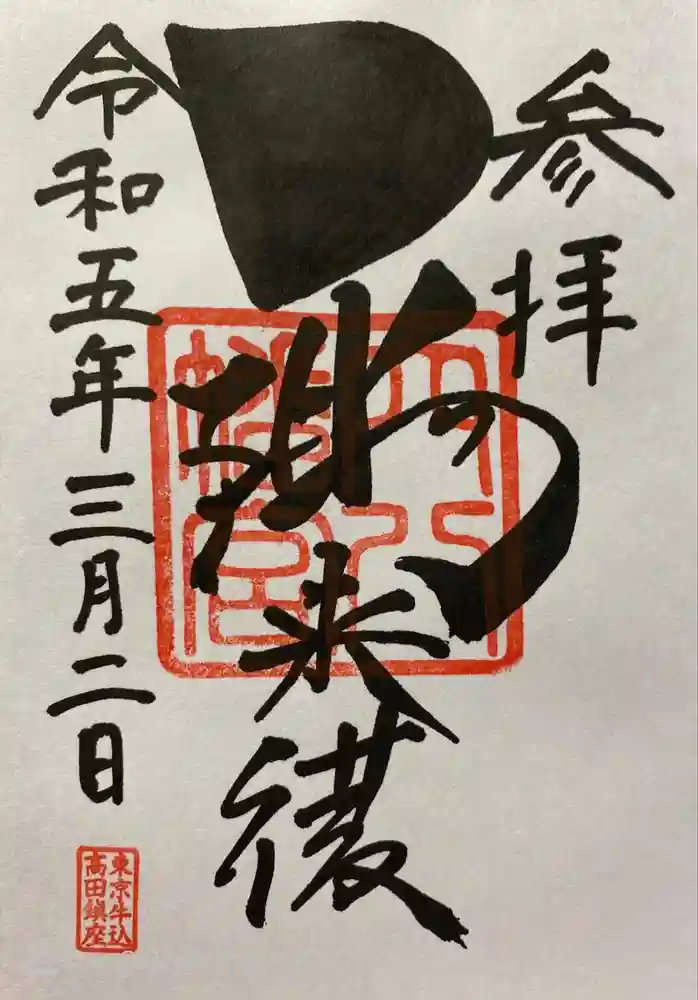 参拝
一陽来復
穴八
幡宮
令和五年三月二日
東京牛込
高田鎮座